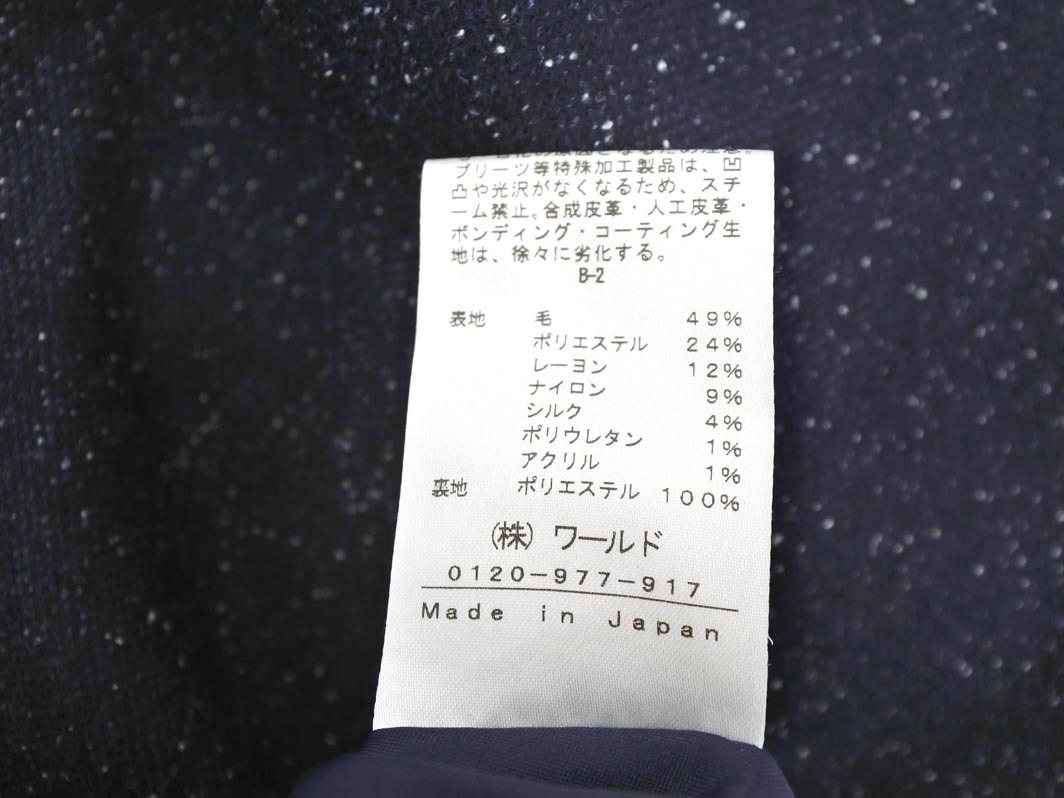 となるため注意。
プリーツ等特殊加工製品は、凹
凸や光沢がなくなるため、スチ
ーム禁止。合成皮革・人工皮革・
ボンディング・コーティング生
地は、徐々に劣化する。
B-2
表地 毛 49%
ポリエステル 24%
レーヨン 12%
ナイロン 9%
シルク 4%
ポリウレタン 1%
アクリル 1%
裏地 ポリエステル 100%
(株) ワールド
0120-977-917
Made in Japan